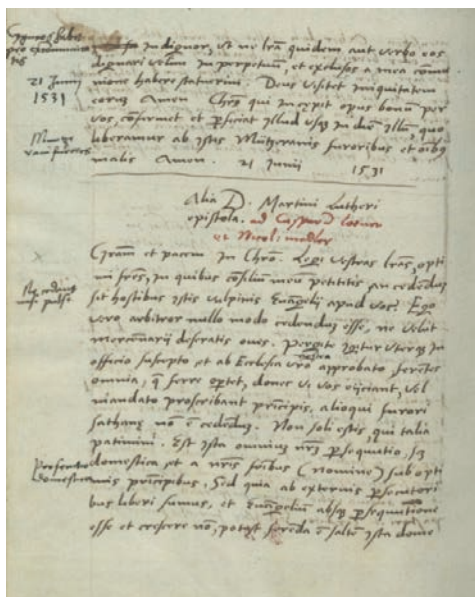 indignor, ut ne lrãs quidem aut verbo eos
dignari velim in perpetuum, et exclusos a mea commu
nione habere statuerim. Deus visitet iniquitatem
eorum Amen. Chrs qui incepit opus bonum per
vos, confirmet et perficiat illud usq; in diem illum, quo
liberamur ab istis Müntzeranis furoribus et oibq
malis Amen. 21 Junii
1531
21 Junii
1531
Alia D. Martini Lutheri
epistola. ad Caspar Loener
et Nicol: medler
Gram et pacem in Chro. Legi vestras lras, opti
mi frēs, in quibus cōsilium meū petitis an cedendū
sit hostibus istis vulpinis Euāgelij apud vos? Ego
vero arbitror nullo modo cedendū esse, ne velit
mercenarij deseratis oves. Pergite igitur uterq; in
officio suscepto et ab Ecclesia vrā approbato, ferētes
omnia, q ferre oportet, donec vi vos eijciant, vel
mandato proscribant prīcipis, alioqui furori
sathanę nō ē cedendū. Non soli estis, qui talia
patimini. Est ista omnium nrm persequutio, sz
domestica et a nris frībus (nomine) sub opti
mis prīcipibus. Sed quia ab externis persecutori
bus liberi sumus, et Euāgelium absq; persequutione
esse et crescere nō potest ferēda ē saltē ista dome